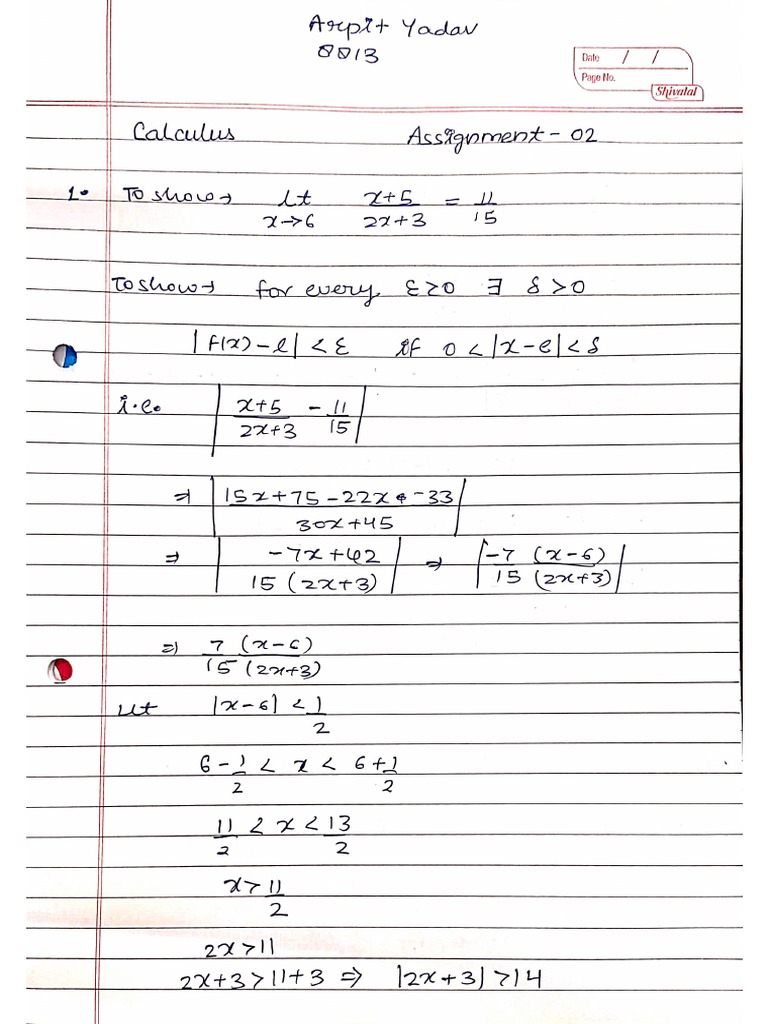 Arpit Yadav
0013
Date / /
Page No.
Shivalal
Calculus Assignment - 02
1. To show → Lt x→6 x+5/2x+3 = 11/15
To show → for every ε>0 ∃ δ>0
|f(x) - l| < ε if 0 < |x-c| < δ
i.e. |x+5/2x+3 - 11/15|
⇒ |15x+75-22x-33/30x+45|
⇒ |-7x+42/15(2x+3)| ⇒ |-7(x-6)/15(2x+3)|
⇒ 7(x-6)/15(2x+3)
Let |x-6| < 1/2
6-1/2 < x < 6+1/2
11/2 < x < 13/2
x > 11/2
2x > 11
2x+3 > 11+3 ⇒ |2x+3| > 14